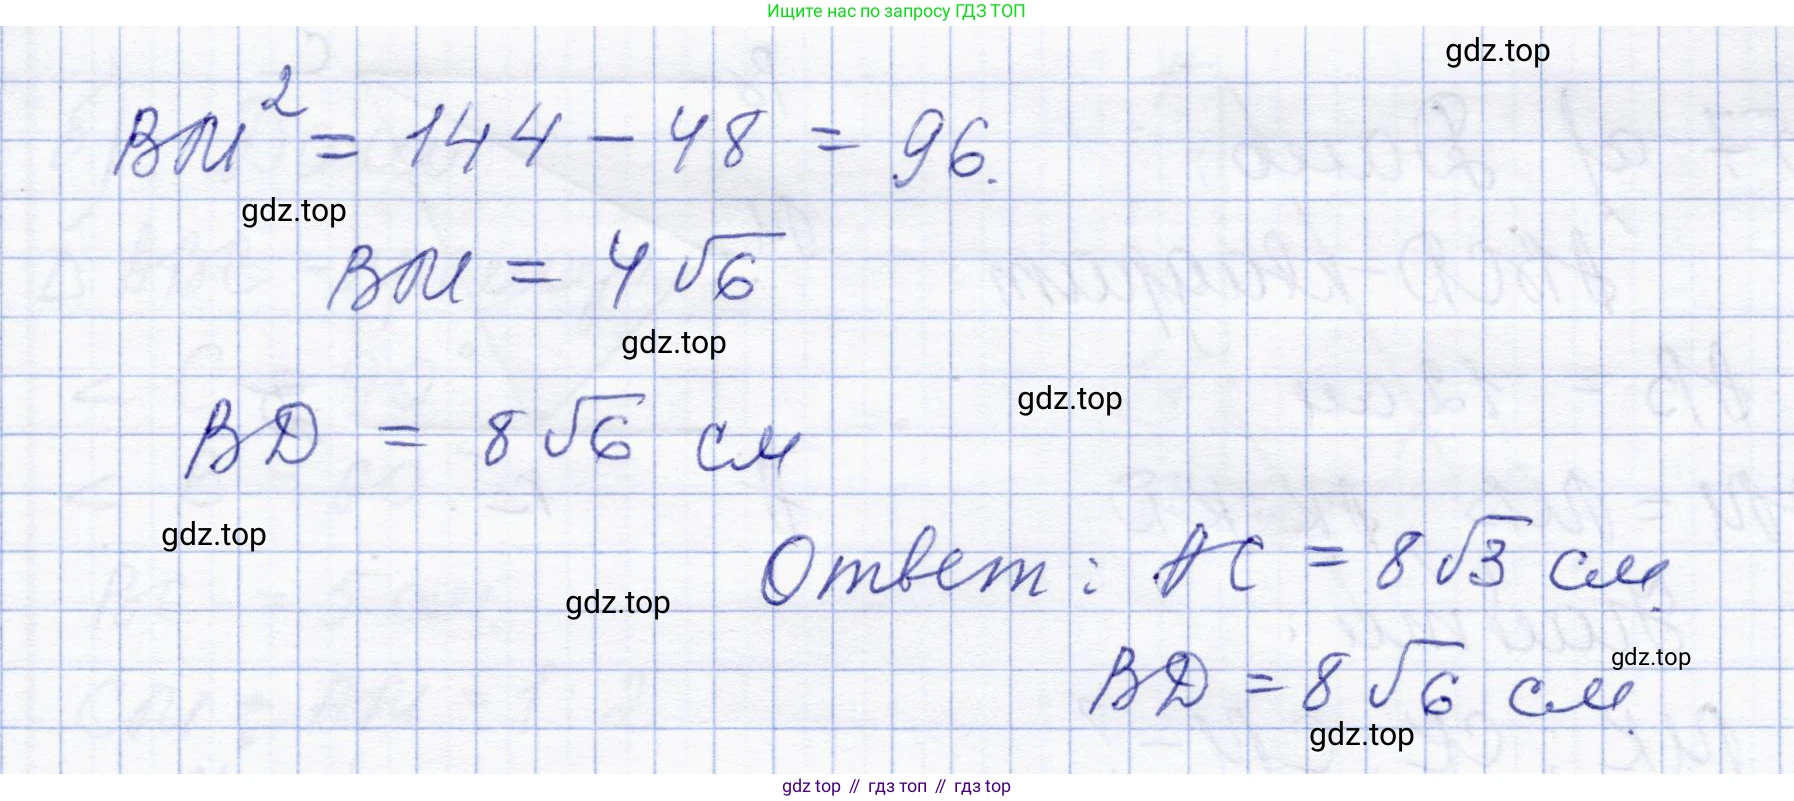 Ищите нас по запросу ГДЗ ТОП
gdz.top
BM² = 144 - 48 = 96.
gdz.top
BM = 4√6
gdz.top
gdz.top
BD = 8√6 см
gdz.top
Ответ: AC = 8√3 см.
gdz.top
BD = 8√6 см.
gdz.top
gdz.top
gdz top // гдз топ // гдз top